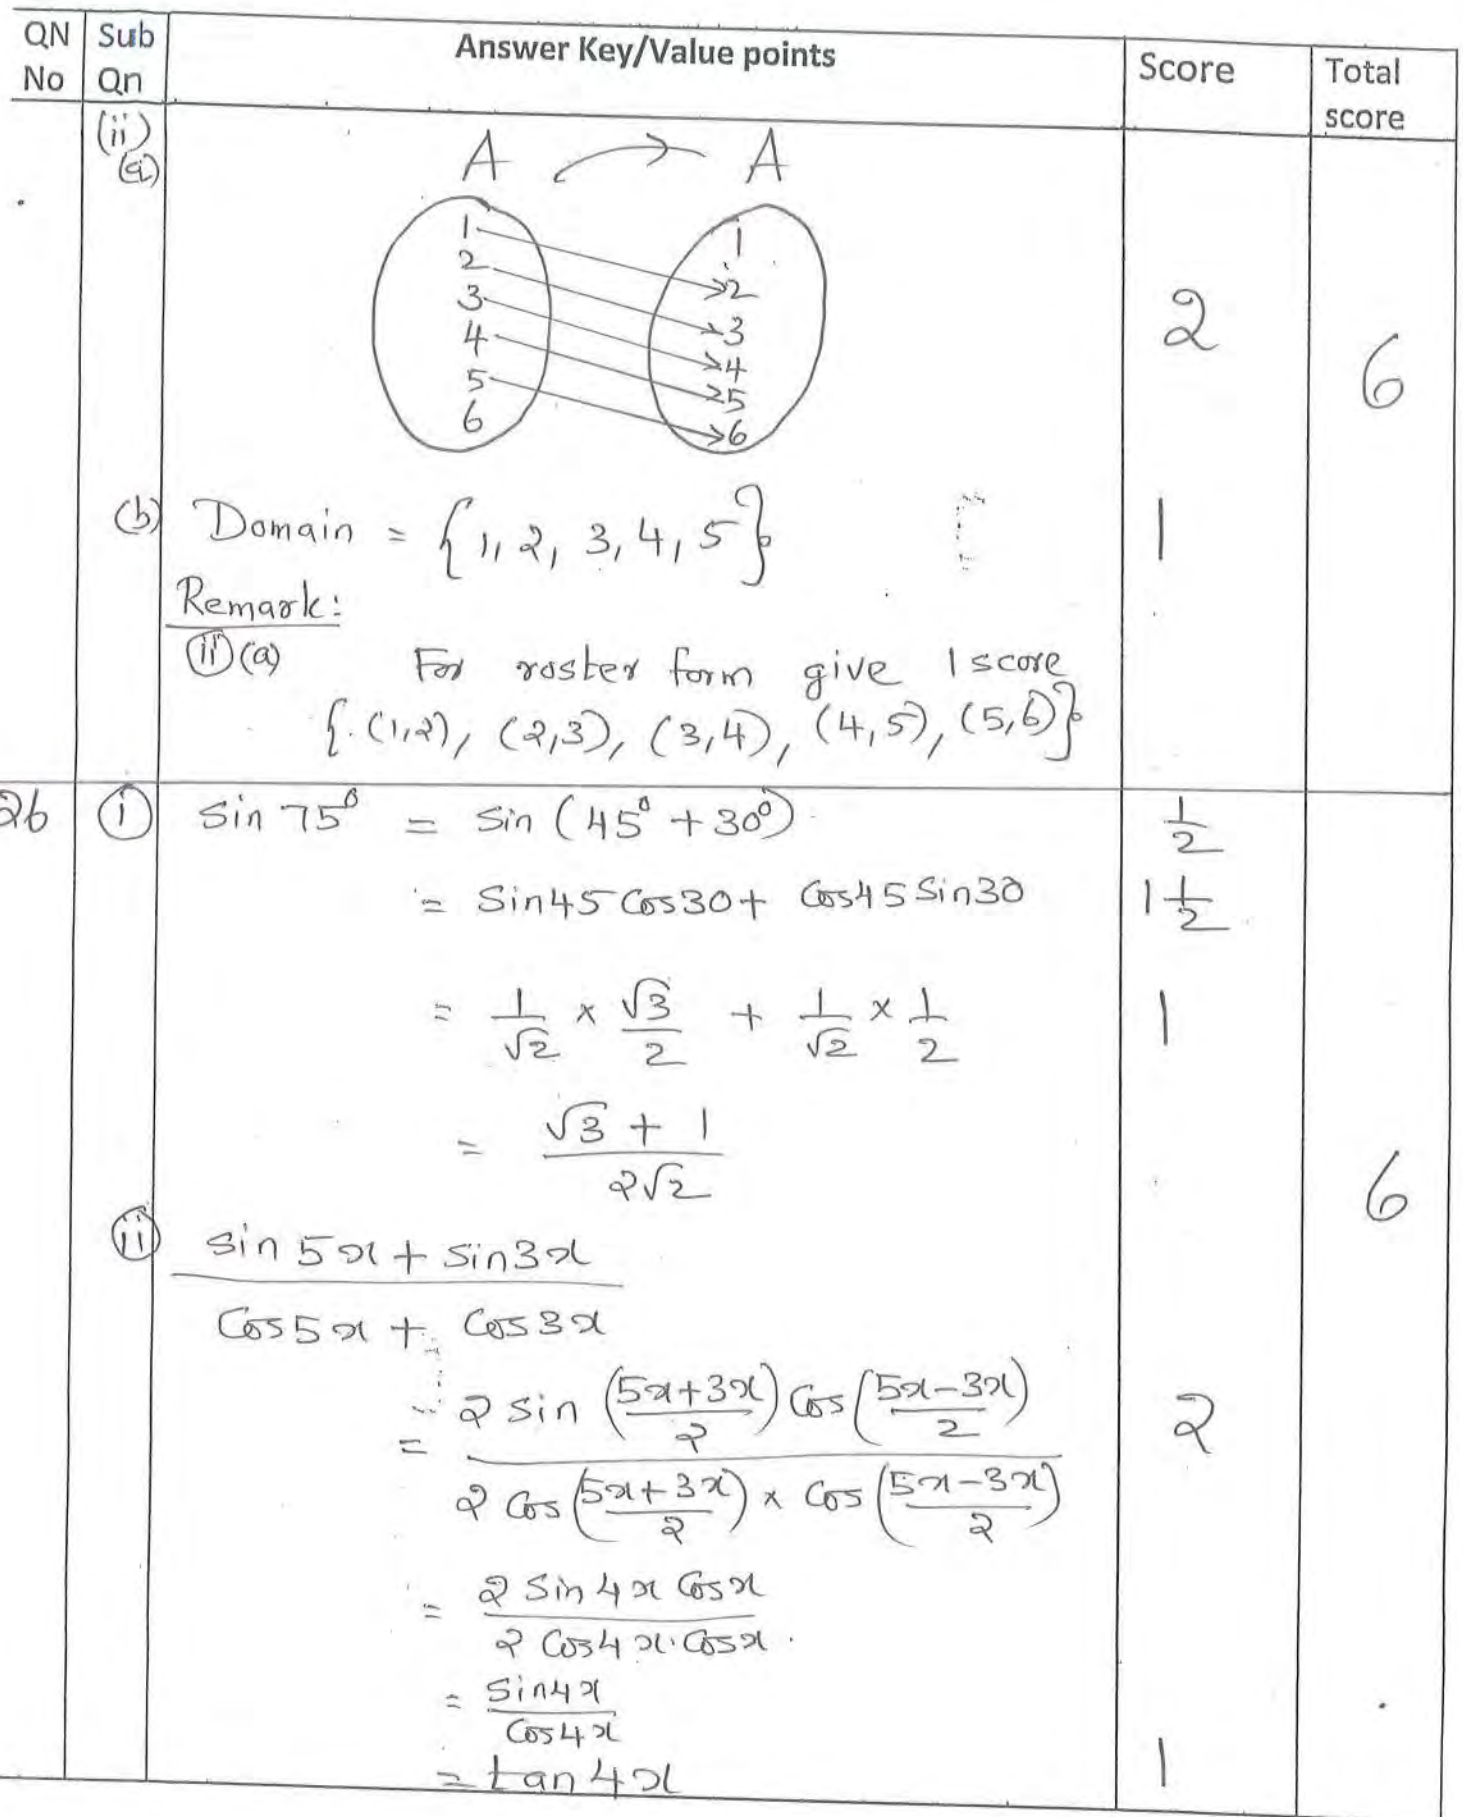 QN No Sub Qn Answer Key/Value points Score Total score
(ii)
(a)
A → A
1 1
2 2
3 3
4 4
5 5
6 6
2
6
(b) Domain = {1, 2, 3, 4, 5} 1
Remark:
(ii) (a) For roster form give 1 score
{(1,2), (2,3), (3,4), (4,5), (5,6)}
26 (i) Sin 75° = Sin (45° + 30°) 1/2
= Sin45 Cos30 + Cos45 Sin30 1 1/2
= 1/√2 × √3/2 + 1/√2 × 1/2 1
= √3 + 1 / 2√2
6
(ii) sin 5x + sin3x
Cos5x + Cos3x
= 2 sin (5x+3x/2) Cos (5x-3x/2) 2
2 Cos (5x+3x/2) × Cos (5x-3x/2)
= 2 Sin 4x Cosx
2 Cos4x.Cosx.
= Sin4x
Cos4x
= tan 4x 1